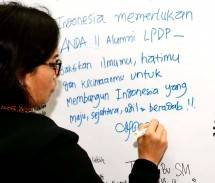 Indonesia memerlukan
ANDA !! Alumni LPDP –
ilmumu, hatimu
dan untuk
membangun Indonesia yang
maju, sejahtera, adil & beradab !!
By SM